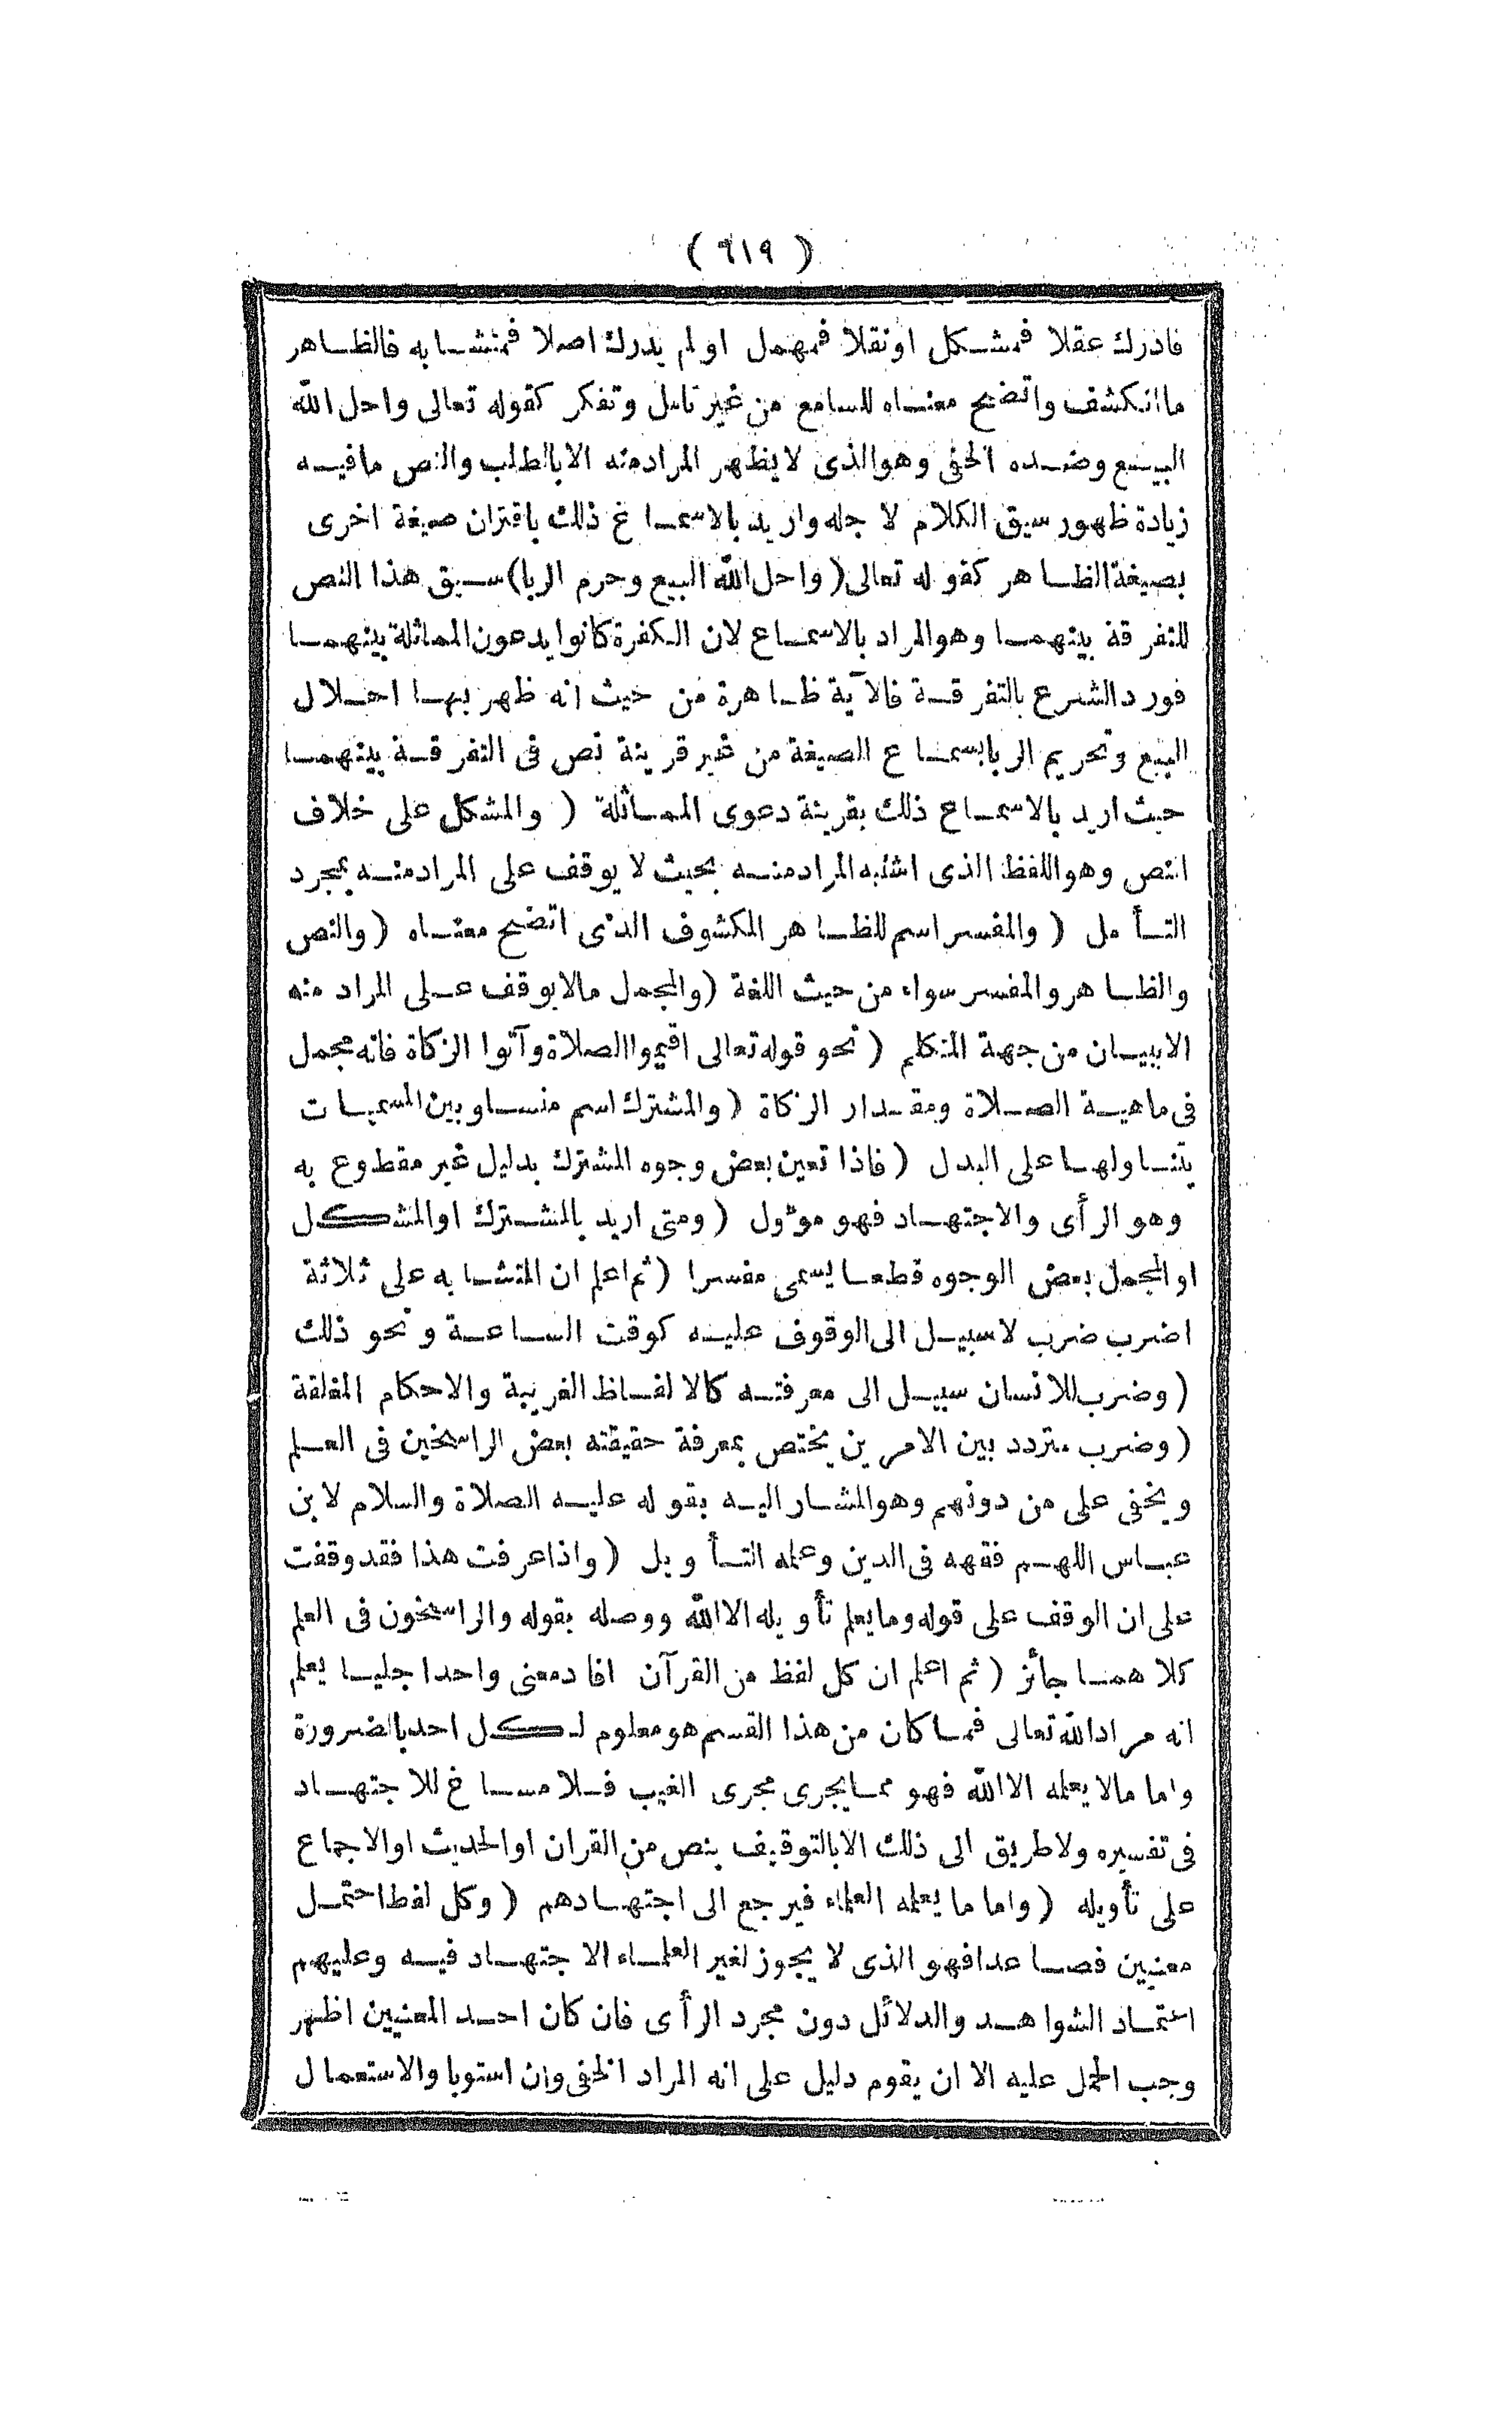 ( ٦١٩ )
فادرك عقلا فمشكل اونقلا فمهمل او لم يدرك اصلا فمتشابه فالظاهر
ماانكشف واتضح معناه للسامع من غير تامل وتفكر كقوله تعالى واحل الله
البيع وضده الخفى وهوالذى لايظهر المرادمنه الابالطلب والنص مافيه
زيادة ظهور سيق الكلام لاجله واريد بالاسماع ذلك باقتران صيغة اخرى
بصيغة الظاهر كقوله تعالى (واحل الله البيع وحرم الربا) سيق هذا النص
للتفرقة بينهما وهوالمراد بالاسماع لان الكفرة كانوا يدعون المماثلة بينهما
فورد الشرع بالتفرقة فالآية ظاهرة من حيث انه ظهر بها احلال
البيع وتحريم الربا بسماع الصيغة من غير قرينة نص فى التفرقة بينهما
حيث اريد بالاسماع ذلك بقرينة دعوى المماثلة ( والمشكل على خلاف
النص وهواللفظ الذى اشتبه المرادمنه بحيث لا يوقف على المرادمنه بمجرد
التأمل ( والمفسر اسم للظاهر المكشوف الذى اتضح معناه ( والنص
والظاهر والمفسر سواء من حيث اللغة ( والمجمل مالايوقف على المراد منه
الاببيان من جهة المتكلم ( نحو قوله تعالى اقيموا الصلاة وآتوا الزكاة فانه مجمل
فى ماهية الصلاة ومقدار الزكاة ( والمشترك اسم متساو بين المسميات
يتناولها على البدل ( فاذا تعين بعض وجوه المشترك بدليل غير مقطوع به
وهو الرأى والاجتهاد فهو مؤول ( ومتى اريد بالمشترك اوالمشكل
او المجمل بعض الوجوه قطعا يسمى مفسرا ( ثم اعلم ان المتشابه على ثلاثة
اضرب ضرب لاسبيل الى الوقوف عليه كوقت الساعة ونحو ذلك
( وضرب للانسان سبيل الى معرفته كالالفاظ الغريبة والاحكام المغلقة
( وضرب متردد بين الامرين يختص بمعرفة حقيقته بعض الراسخين فى العلم
ويخفى على من دونهم وهوالمشار اليه بقوله عليه الصلاة والسلام لابن
عباس اللهم فقهه فى الدين وعلمه التأويل ( واذاعرفت هذا فقد وقفت
على ان الوقف على قوله ومايعلم تأويله الاالله ووصله بقوله والراسخون فى العلم
كلاهما جائز ( ثم اعلم ان كل لفظ من القرآن افاد معنى واحدا جليا يعلم
انه مراد الله تعالى فما كان من هذا القسم هو معلوم لكل احد بالضرورة
واما مالايعلمه الاالله فهو ممايجرى مجرى الغيب فلا مساغ للاجتهاد
فى تفسيره ولاطريق الى ذلك الابالتوقيف بنص من القران اوالحديث اوالاجماع
على تأويله ( واما ما يعلمه العلماء فيرجع الى اجتهادهم ( وكل لفظ احتمل
معنيين فصاعدا فهو الذى لا يجوز لغير العلماء الاجتهاد فيه وعليهم
اعتماد الشواهد والدلائل دون مجرد الرأى فان كان احد المعنيين اظهر
وجب الحمل عليه الا ان يقوم دليل على انه المراد الخفى وان استويا والاستعمال